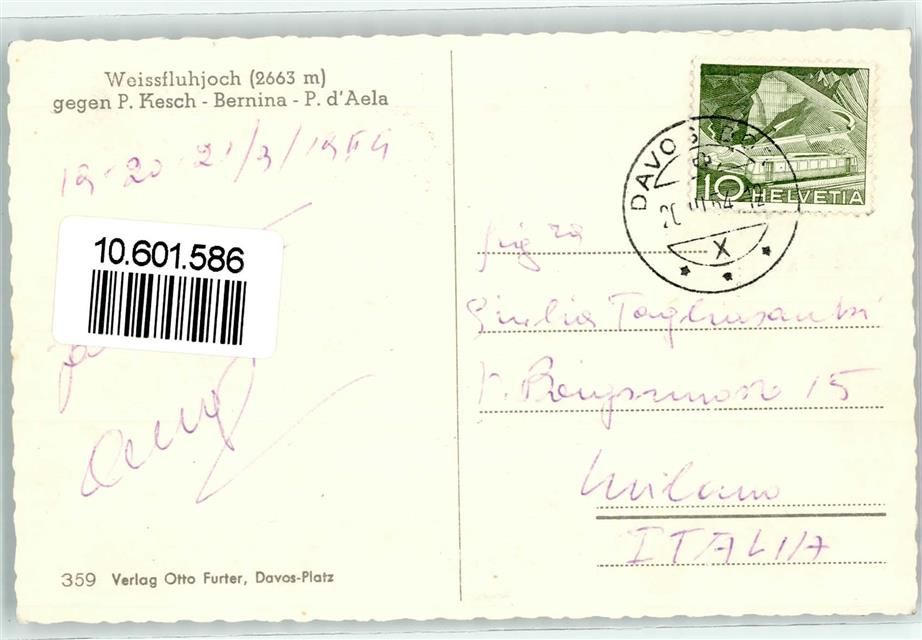 Weissfluhjoch (2663 m)
gegen P. Kesch - Bernina - P. d'Aela
19-20-21/3/1954
10.601.586
359 Verlag Otto Furter, Davos-Platz
10 HELVETIA
DAVOS
54-12
X
Sig ra
Giulia
15
Milano
ITALIA